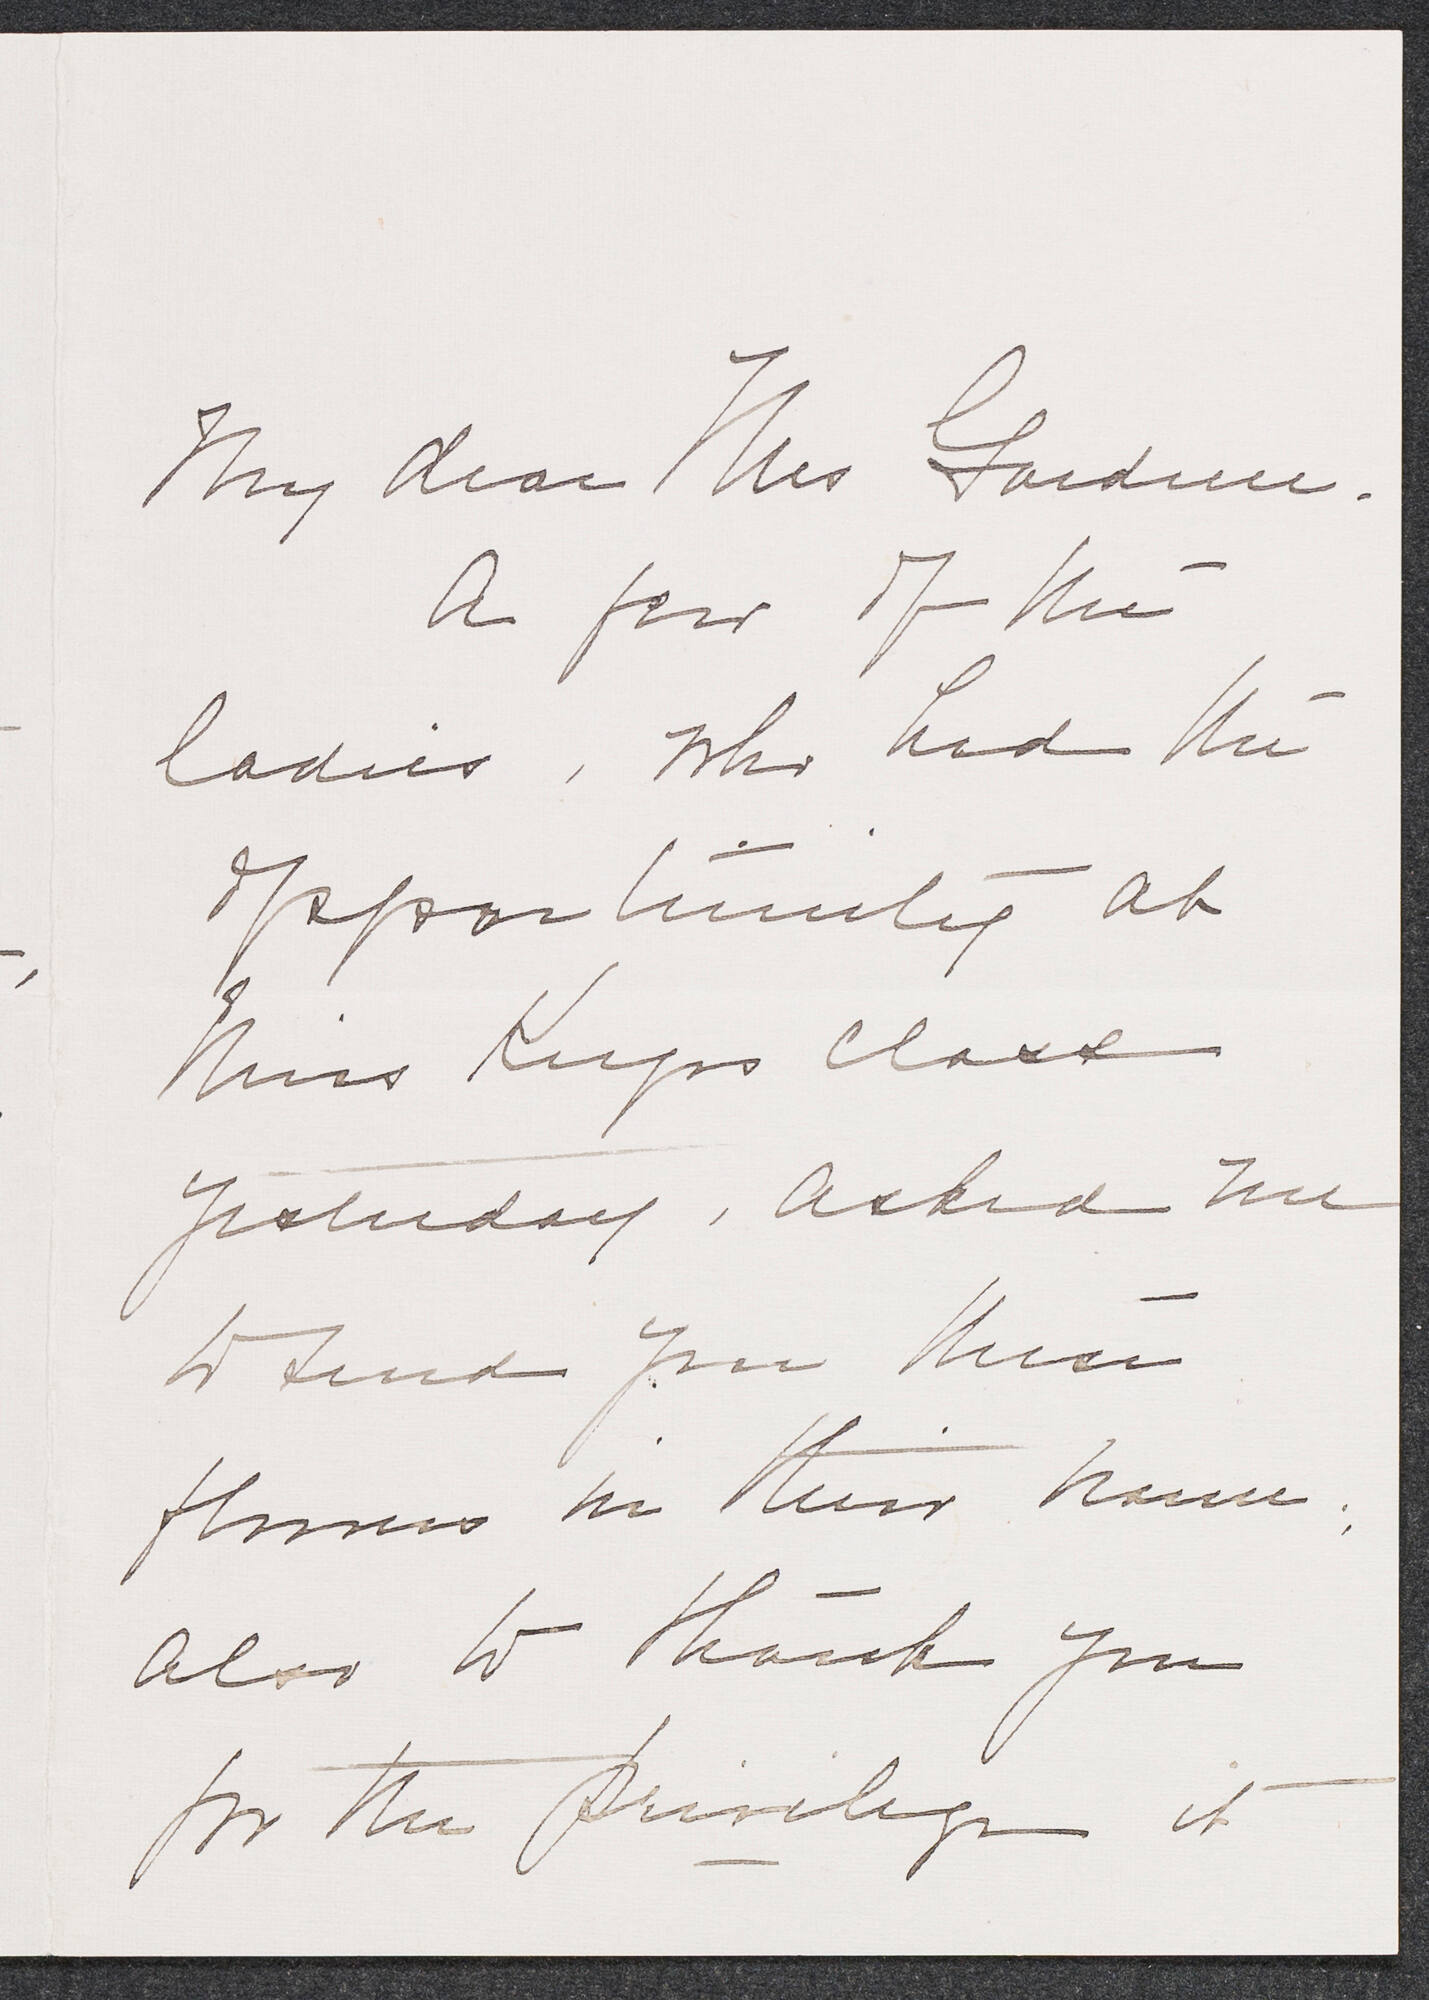 My dear Mrs Gardner.
A few of the
ladies, who had the
opportunity at
Miss Keyes class
yesterday, asked me
to send you these
flowers in their name;
also to thank you
for the privilege it